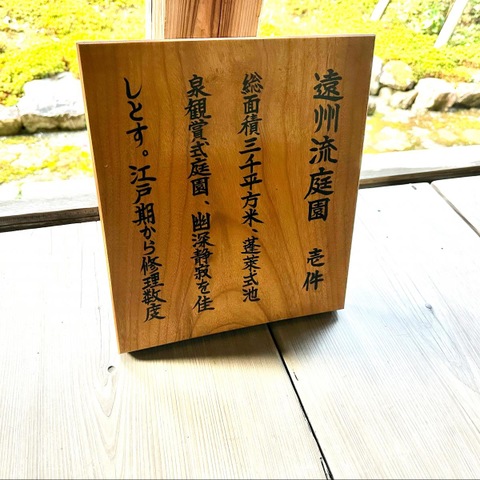 遠州流庭園 壱件
総面積三千平方米、蓬莱式池
泉観賞式庭園、幽深静寂を佳
しとす。江戸期から修理数度